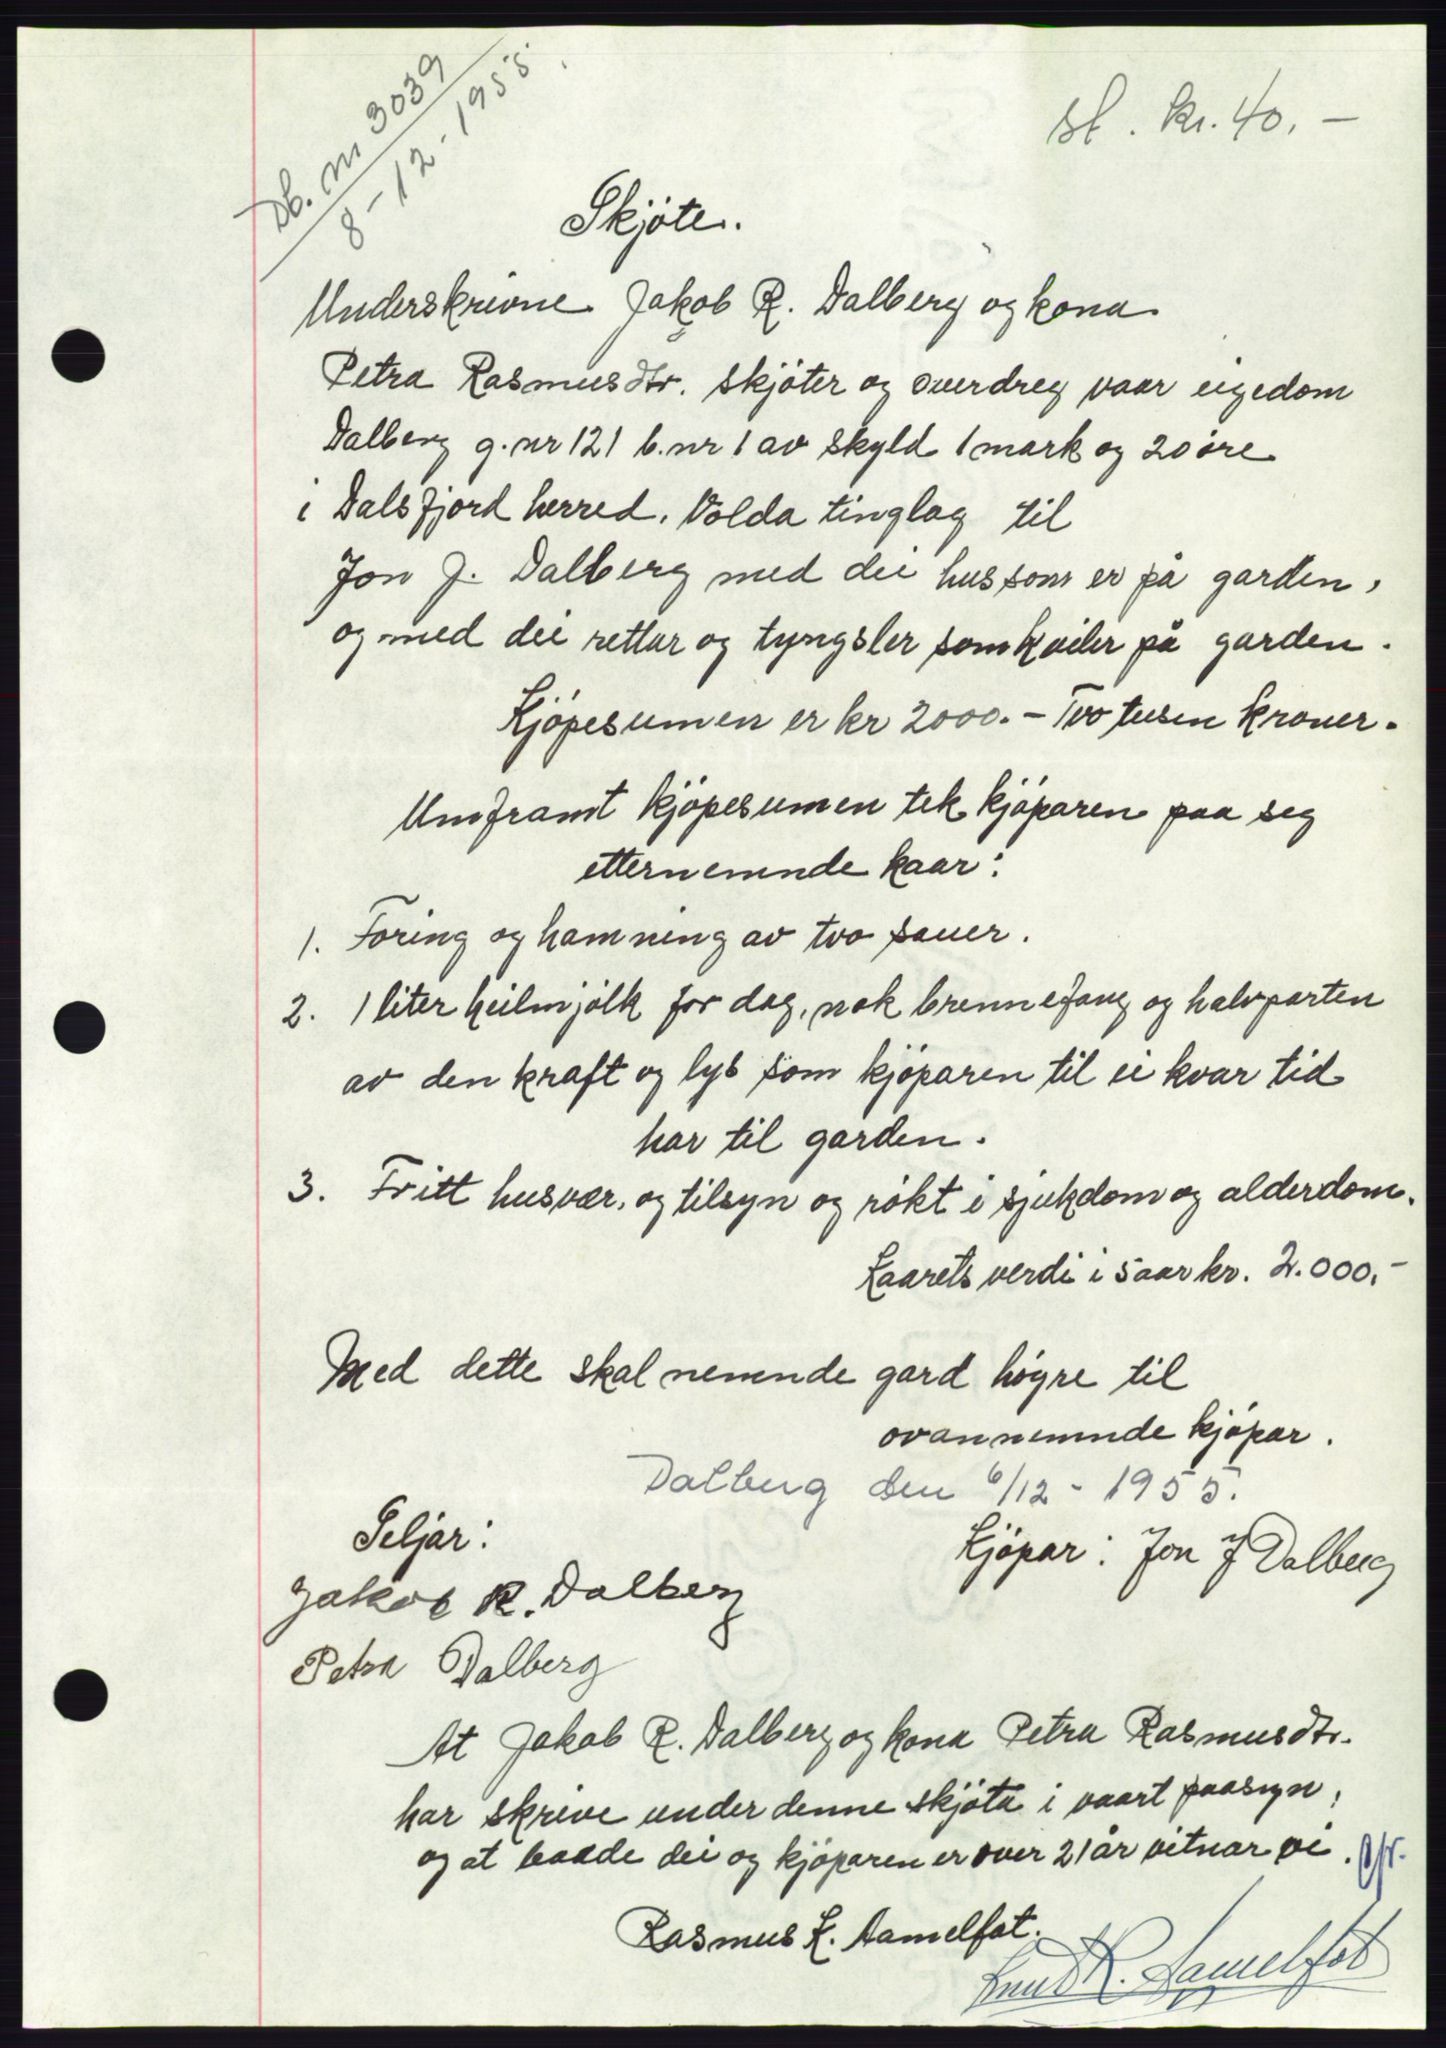 Db. nr 3039
8-12-1955.
st. kr. 40.-
Skjöte.
Underskrivne Jakob R. Dalberg og kona
Petra Rasmusdtr. skjöter og overdreg vaar eigedom
Dalberg g.nr 121 b.nr 1 av skyld 1 mark og 20 öre
i Dalsfjord herred, Volda tinglag til
Jon J. Dalberg med dei hus som er på garden,
og med dei rettar og tyngsler som kviler på garden.
Kjöpesumen er kr 2000.- Tvo tusen kroner.
Umframt kjöpesumen tek kjöparen paa seg
etternemnde kaar:
1. Foring og hamning av tvo sauer.
2. 1 liter heilmjölk for dag, nok brennefang og halvparten
av den kraft og lys som kjöparen til ei kvar tid
har til garden.
3. Fritt husvær, og tilsyn og rökt i sjukdom og alderdom.
Kaarets verdi i 5 aar kr. 2.000.-
Med dette skal nemnde gard högre til
ovannemnde kjöpar.
Dalberg den 6/12 - 1955.
Seljar:
Kjöpar: Jon J Dalberg
Jakob R. Dalberg
Petra Dalberg
At Jakob R. Dalberg og kona Petra Rasmusdtr.
har skrive under denne skjöta i vaart paasyn,
og at baade dei og kjöparen er over 21 år vitnar vi.
Rasmus K. Aamelfot.
Knut R. Aamelfot